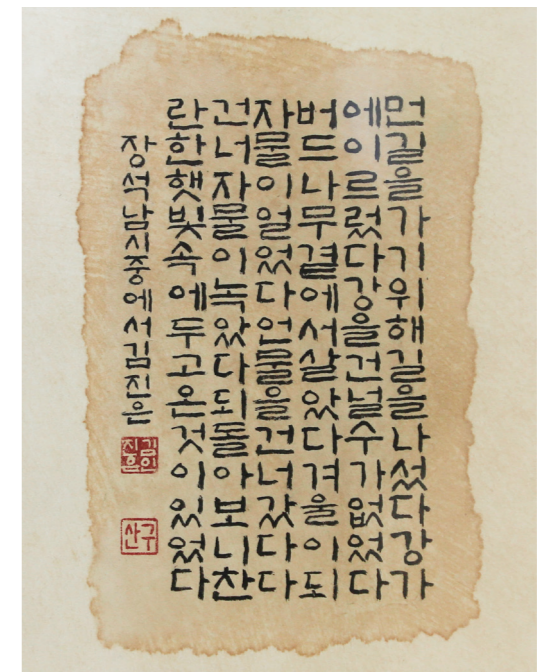 먼길을가기위해길을나섰다강가
에이르렀다강을건널수가없었다
버드나무곁에서살았다겨울이되
자물이얼었다언물을건너갔다다
건너자물이녹았다되돌아보니찬
란한햇빛속에두고온것이있었다
장석남시중에서
구산